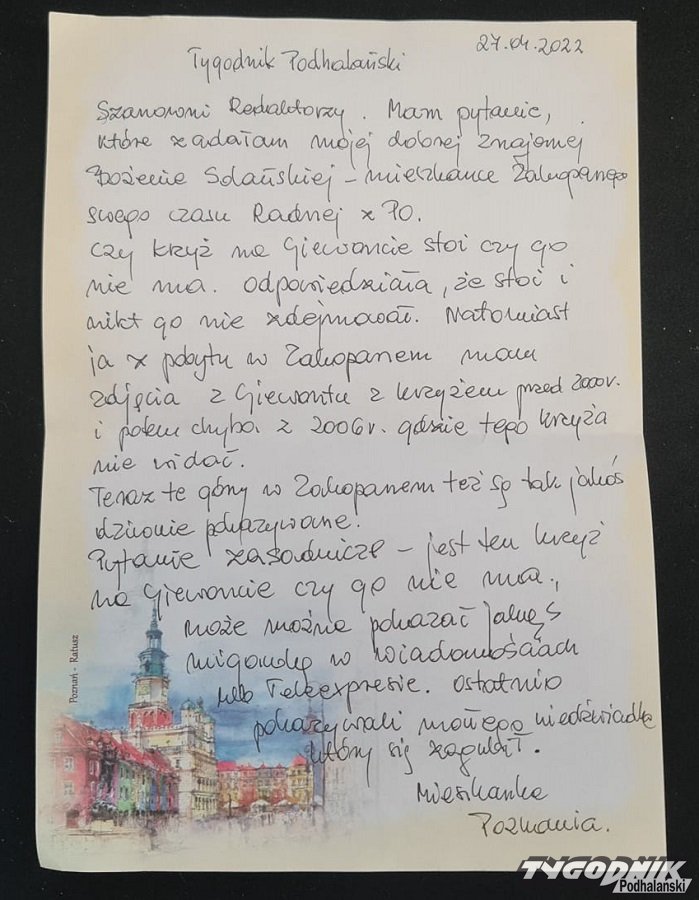 27.04.2022
Tygodnik Podhalański
Szanowni Redaktorzy. Mam pytanie,
które zadałam mojej dobrej znajomej
Bożenie Solańskiej - mieszkance Zakopanego
swego czasu Radnej z PO.
Czy krzyż na Giewoncie stoi czy go
nie ma. Odpowiedziała, że stoi i
nikt go nie zdejmował. Natomiast
ja z pobytu w Zakopanem mam
zdjęcia z Giewontu z krzyżem przed 2000r.
i potem chyba z 2006r. gdzie tego krzyża
nie widać.
Teraz te góry w Zakopanem też są tak jakoś
dziwnie pokazywane.
Pytanie zasadnicze - jest ten krzyż
na Giewoncie czy go nie ma.,
może można pokazać jakąś
migawkę w wiadomościach
lub Teleexpresie. Ostatnio
pokazywali małego niedźwiadka
który się zagubił.
Mieszkanka
Poznania.
Poznań - Ratusz
TYGODNIK
Podhalański